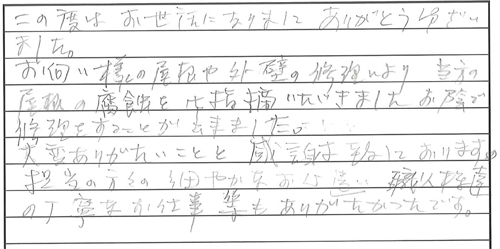 この度はお世話になりまして ありがとうござい
ました。
お向い様の屋根や外壁の修理により 当方の
屋根の腐蝕をご指摘いただきました お陰で
修理をすることが出来ました。
大変ありがたいことと 感謝致しております。
担当の方々の細やかなお心遣い 職人様達
の丁寧なお仕事 等もありがたかったです。